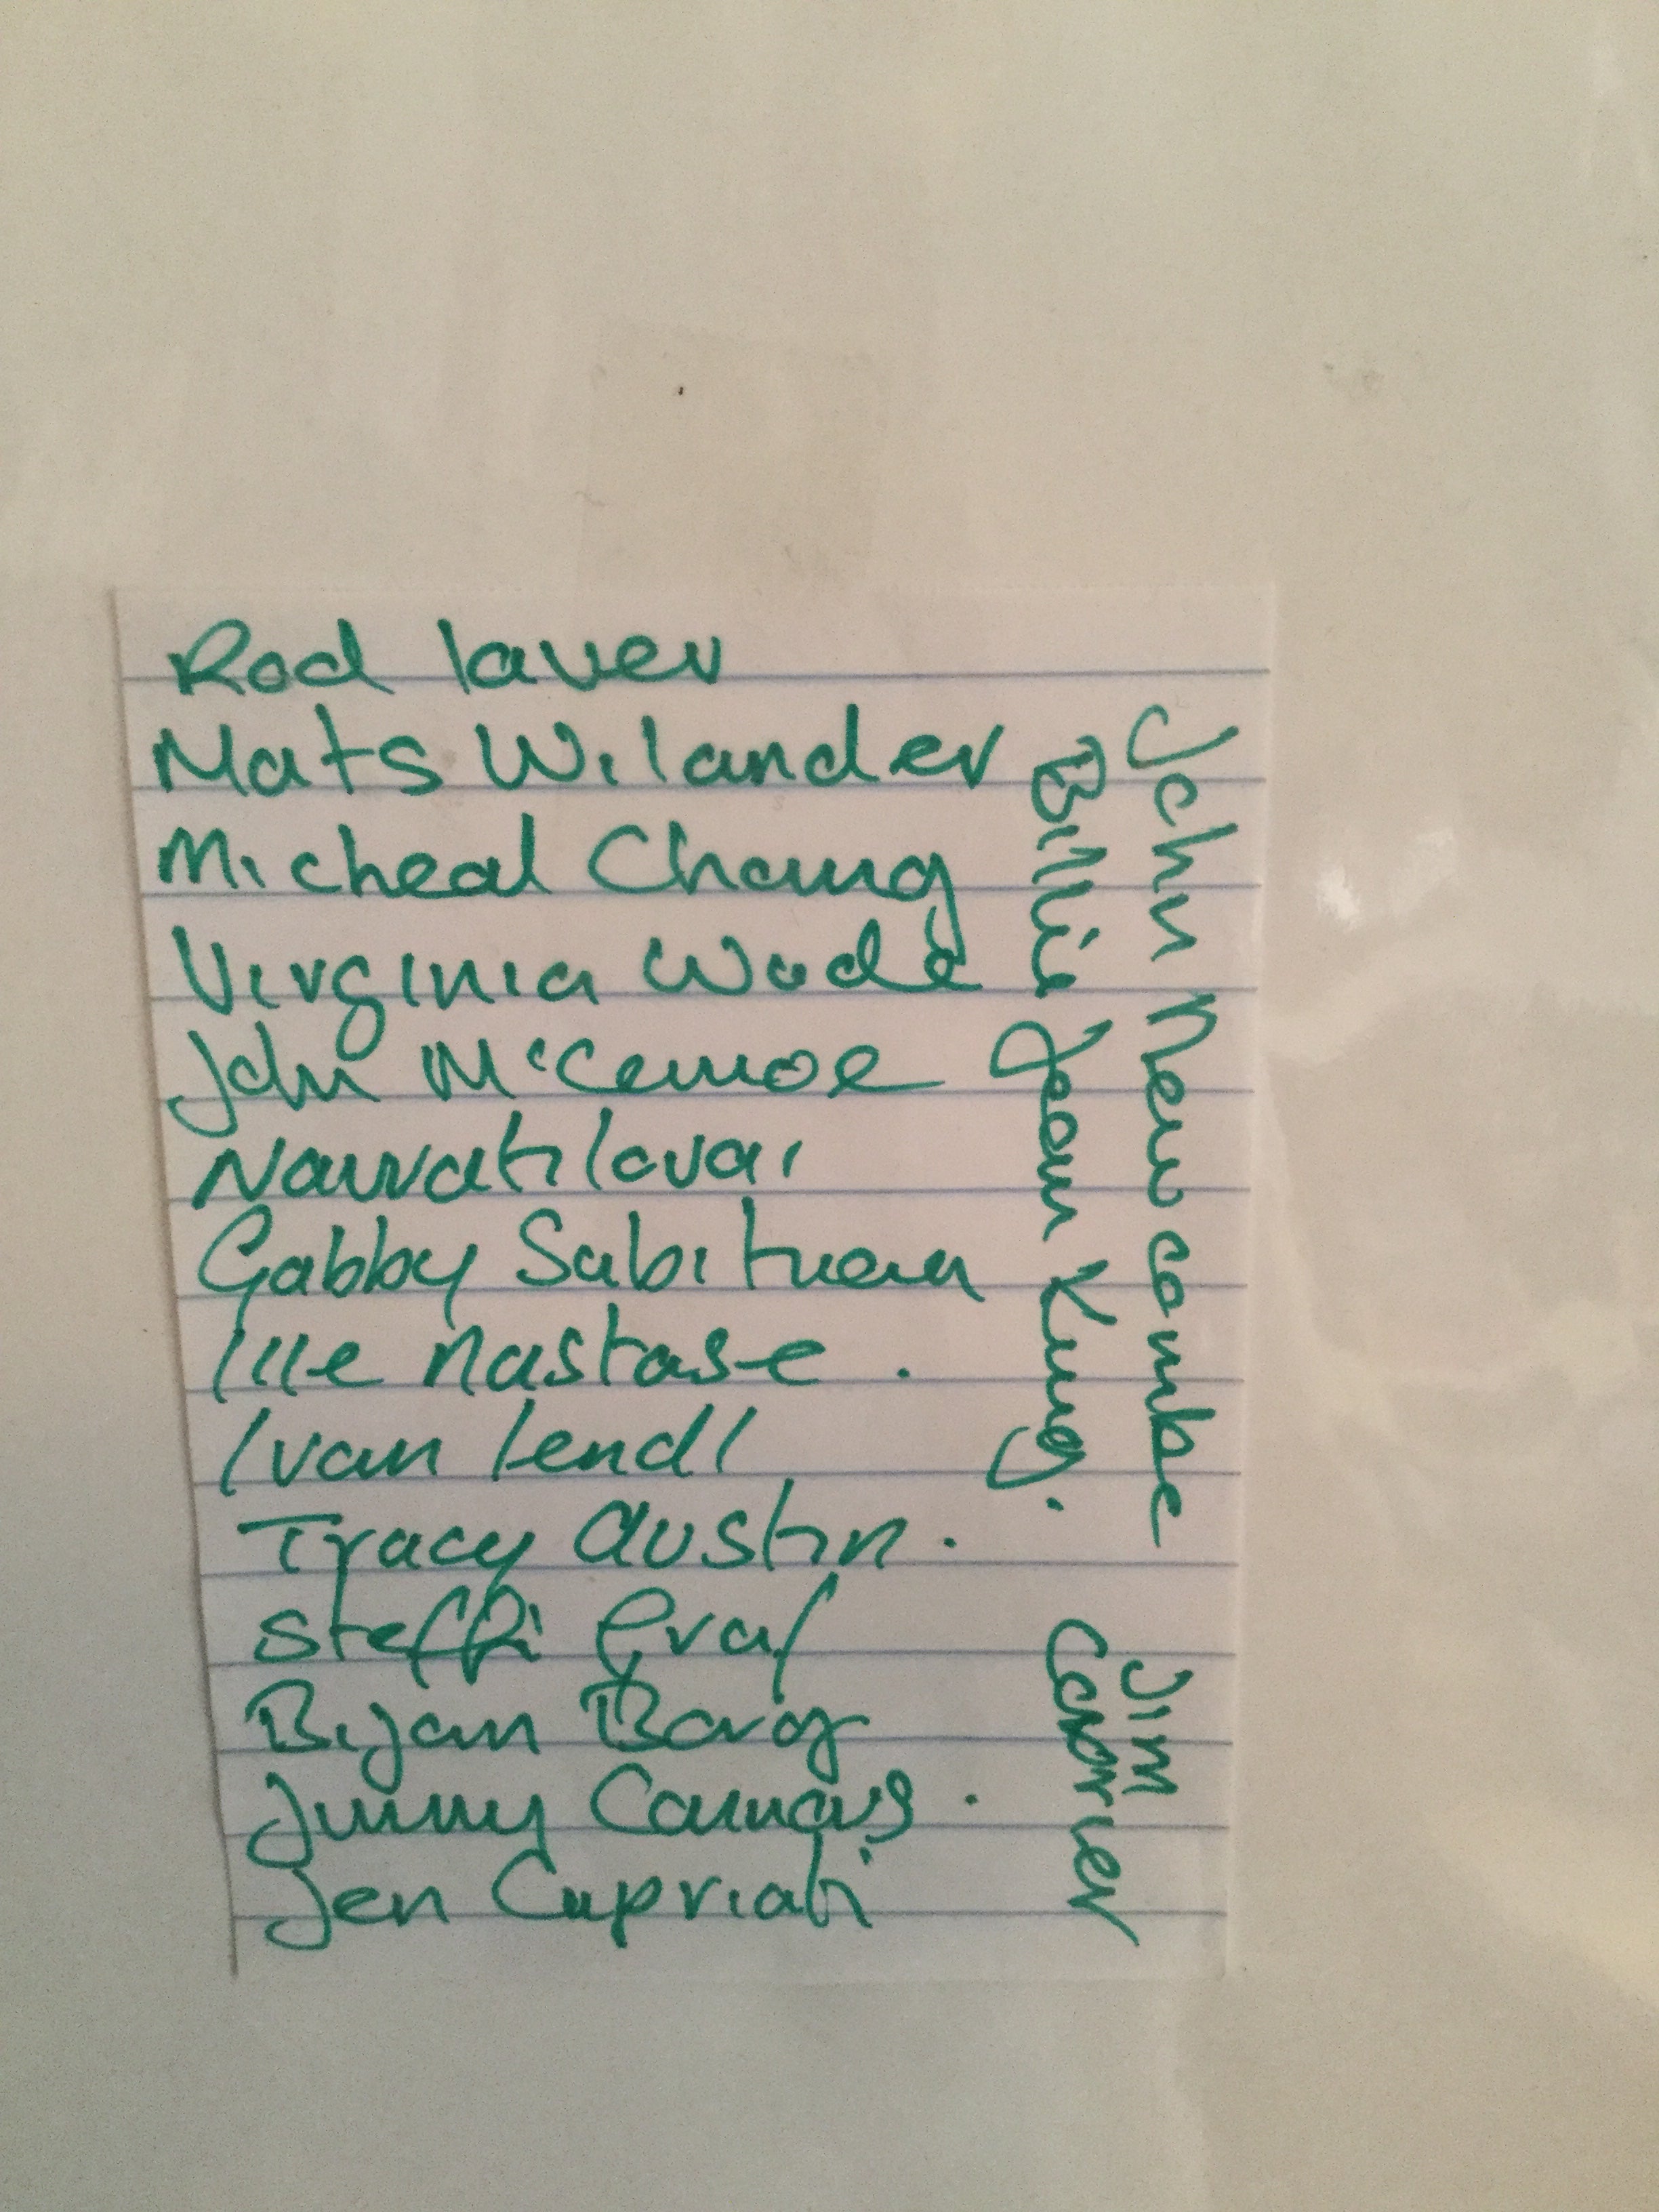 Rod laver
Mats Wilander
Micheal Chang
Virginia Wade
John McCenroe
Navratilova
Gabby Sabituan
Ille Nastase .
Ivan lendl
Tracy Austin .
Steffi Graf
Bijan Borg
Jimmy Connors .
Jen Capriati
John Newcombe
Billie Jean King .
Jim